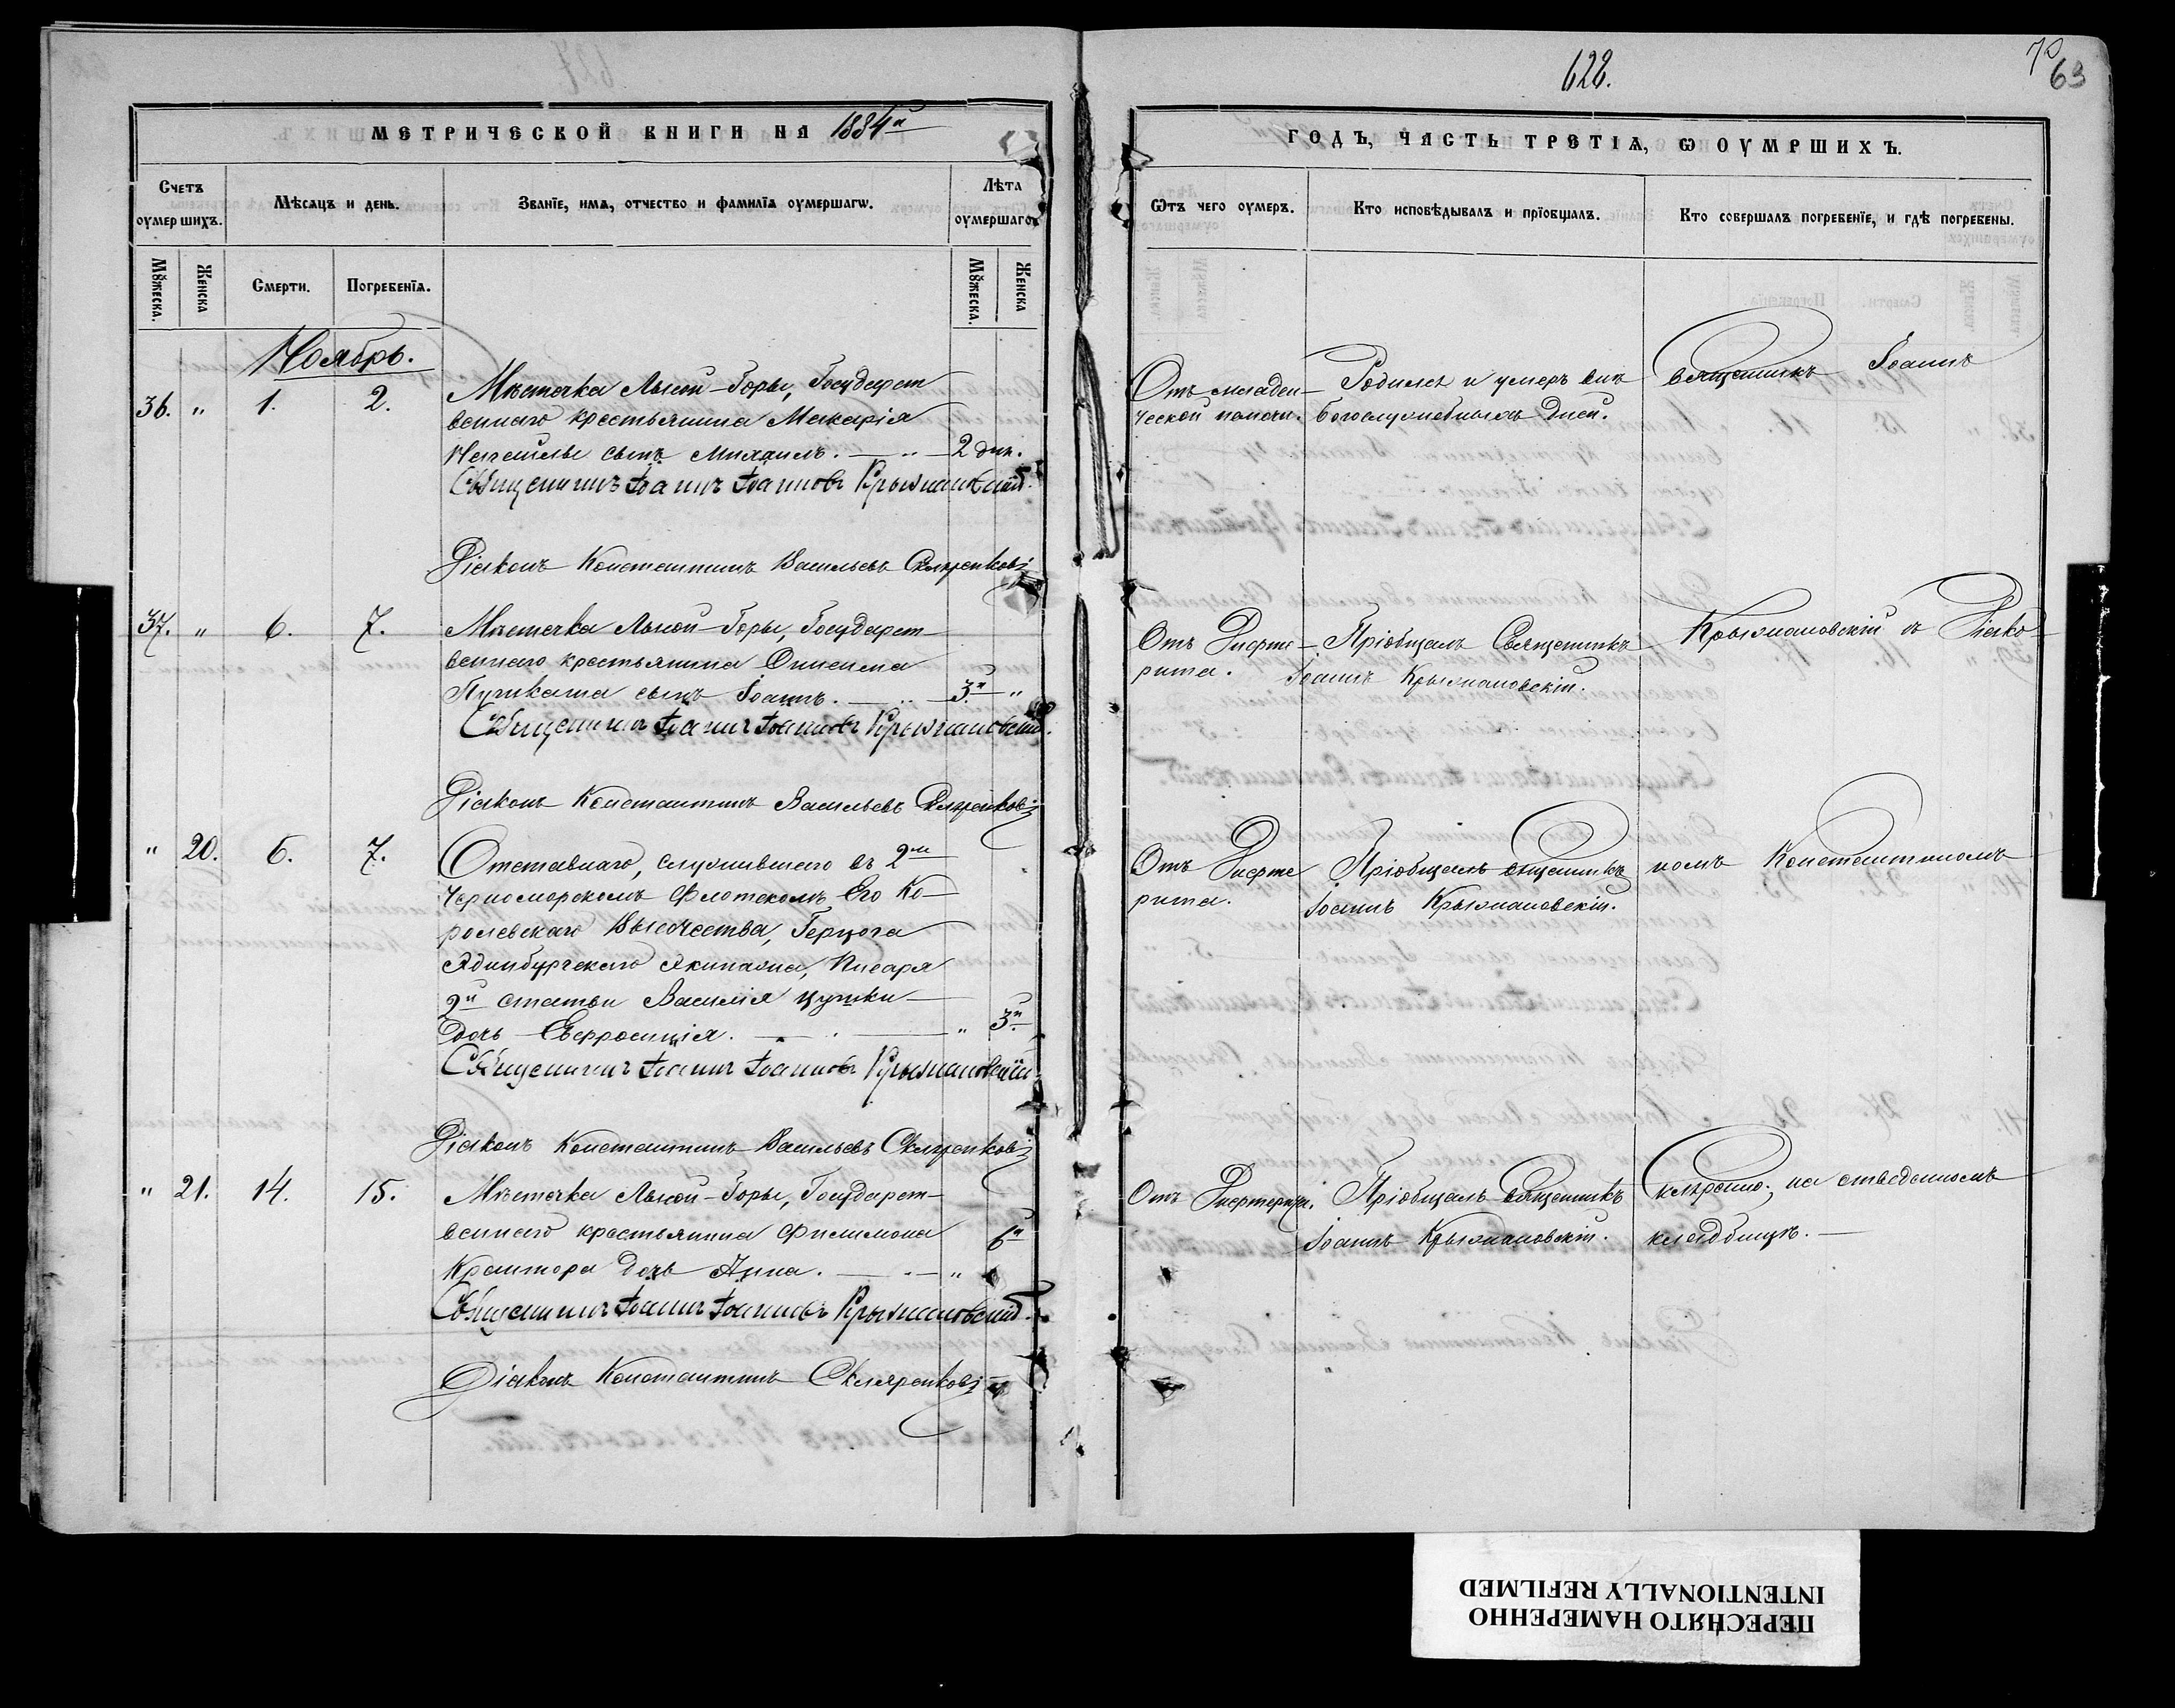 628.
70
63
МЕТРИЧЕСКОЙ КНИГИ НА 1884й
ГОДЪ, ЧАСТЬ ТРЕТІѦ, Ѡ ОУМРШИХЪ.
Счетъ оумершихъ.
Мѣсѧцъ и день.
Званїе, имѧ, отчество и фамилїѧ оумершагѡ.
Лѣта оумершагѡ
Ѿтъ чего оумеръ.
Кто исповѣдывалъ и прїобщалъ.
Кто совершалъ погребенїе, и гдѣ погребены.
Мꙋжеска.
Женска
Смерти.
Погребенїѧ.
Мꙋжеска.
Женска
Ноябрь.
36. " 1. 2.
Мѣстечка Лысой-Горы, Государст
веннаго крестьянина Макарія
сынъ Михаилъ. 2 дня.
Священникъ Іоаннъ Іоанновъ Крыжановскій
Діаконъ Константинъ Васильевъ Скляренковъ
Отъ младен-
ческой немочи.
Родился и умеръ внѣ
богослужебныхъ дней.
Священникъ Іоаннъ
37. " 6. 7.
Мѣстечка Лысой-Горы, Государст-
веннаго крестьянина Онисима
Пушкаша сынъ Іоаннъ. 3л "
Священникъ Іоаннъ Іоанновъ Крыжановскій.
Діаконъ Константинъ Васильевъ Скляренковъ
Отъ Дифте-
рита.
Пріобщалъ Священникъ
Іоаннъ Крыжановскій.
Крыжановскій съ Діако-
" 20. 6. 7.
Отставнаго, служившего въ 2мъ
Черноморскомъ Флотскомъ Его Ко-
ролевскаго Высочества, Герцога
Эдинбургскаго Экипажа, Писаря
2й статьи Василія Цушки
дочь Евфросинія. " 3л
Священникъ Іоаннъ Іоанновъ Крыжановскій
Діаконъ Константинъ Васильевъ Скляренковъ
Отъ Дифте
рита.
Пріобщалъ Священникъ
Іоаннъ Крыжановскій.
номъ Константиномъ
" 21. 14. 15.
Мѣстечка Лысой-Горы, Государст-
веннаго крестьянина Филимона
Крантора дочь Анна. " 6л
Священникъ Іоаннъ Іоанновъ Крыжановскій.
Діаконъ Константинъ Скляренковъ
Отъ Дифтерита.
Пріобщалъ Священникъ
Іоаннъ Крыжановскій.
на отведенномъ
кладбищѣ.
ПЕРЕСНЯТО НАМЕРЕННО
INTENTIONALLY REFILMED